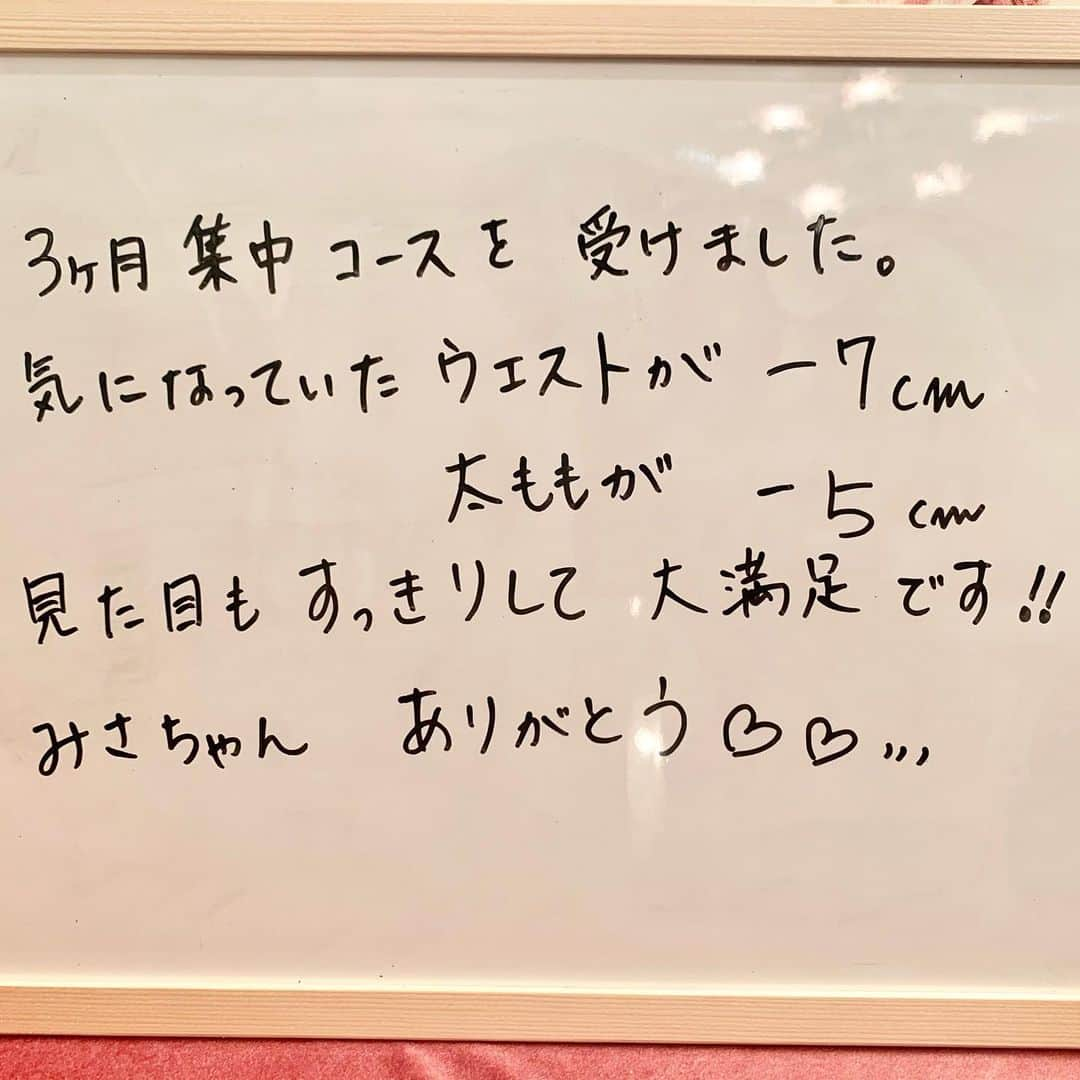 3ヶ月集中コースを 受けました。
気になっていたウエストが -7cm
太ももが -5cm
見た目もすっきりして 大満足です!!
みさちゃん ありがとう♡♡,,,